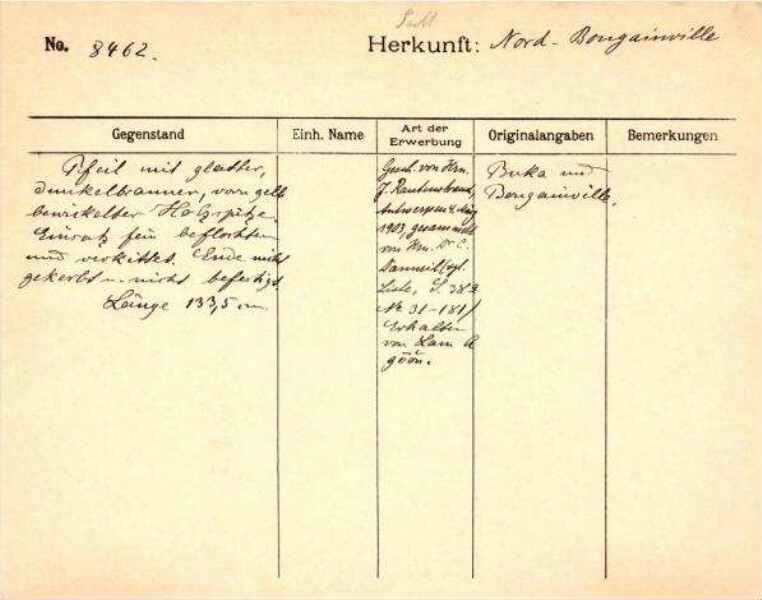 No. 8462.
Herkunft: Nord-Bougainville
Gegenstand
Einh. Name
Art der Erwerbung
Originalangaben
Bemerkungen
Pfeil mit glatter,
dunkelbrauner, vorn gelb
bewickelter Holzspitze.
Einsatz fein beflochten
und verkittet. Ende nicht
gekerbt u. nicht befestigt.
Länge 133,5 cm
Gesch. von Hrn.
J. Rautenstrauch,
Antwerpen 4.
1903, gesammelt
von Hrn. Dr. C.
Liste, S. 382
No 31-181)
Erhalten
von
Buka und
Bougainville.